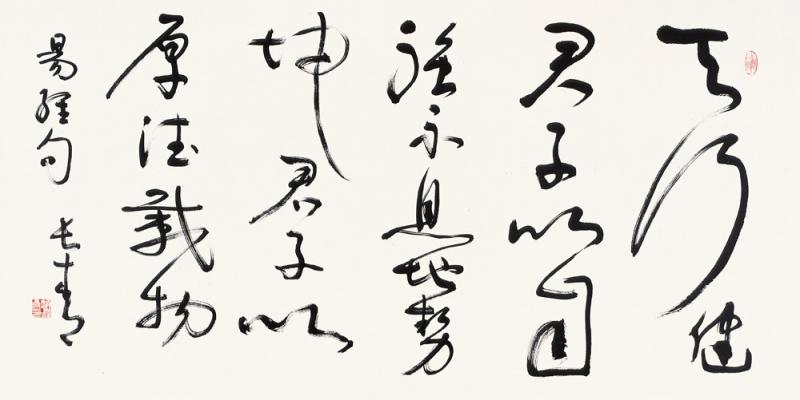 天行健
君子以自
强不息地势
坤君子以
厚德载物
易经句 长青